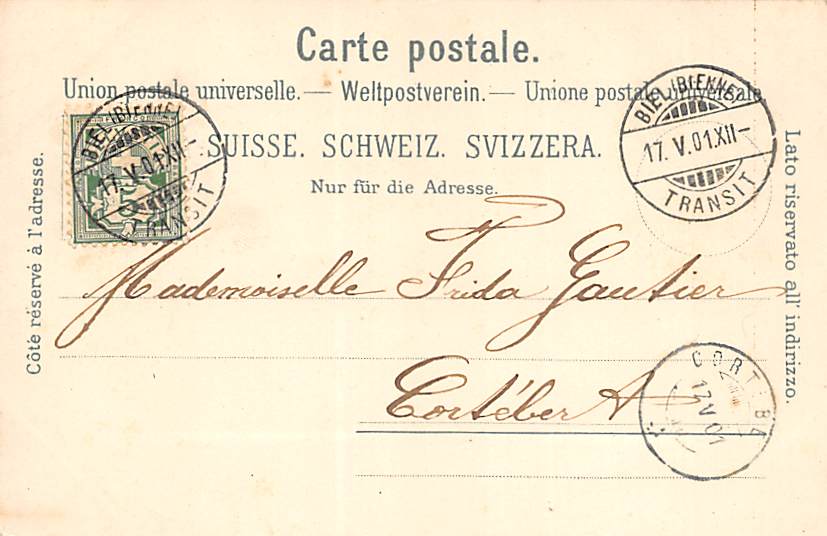 Carte postale.
Union postale universelle. — Weltpostverein. — Unione postale universale
SUISSE. SCHWEIZ. SVIZZERA.
Nur für die Adresse.
Côté réservé à l'adresse.
Lato riservato all' indirizzo.
BIEL (BIENNE)
17. V. 01. XII –
TRANSIT
BIEL (BIENNE)
17. V. 01. XII –
TRANSIT
Mademoiselle Frida Gautier
Cortébert
CORT BE
17 V 01